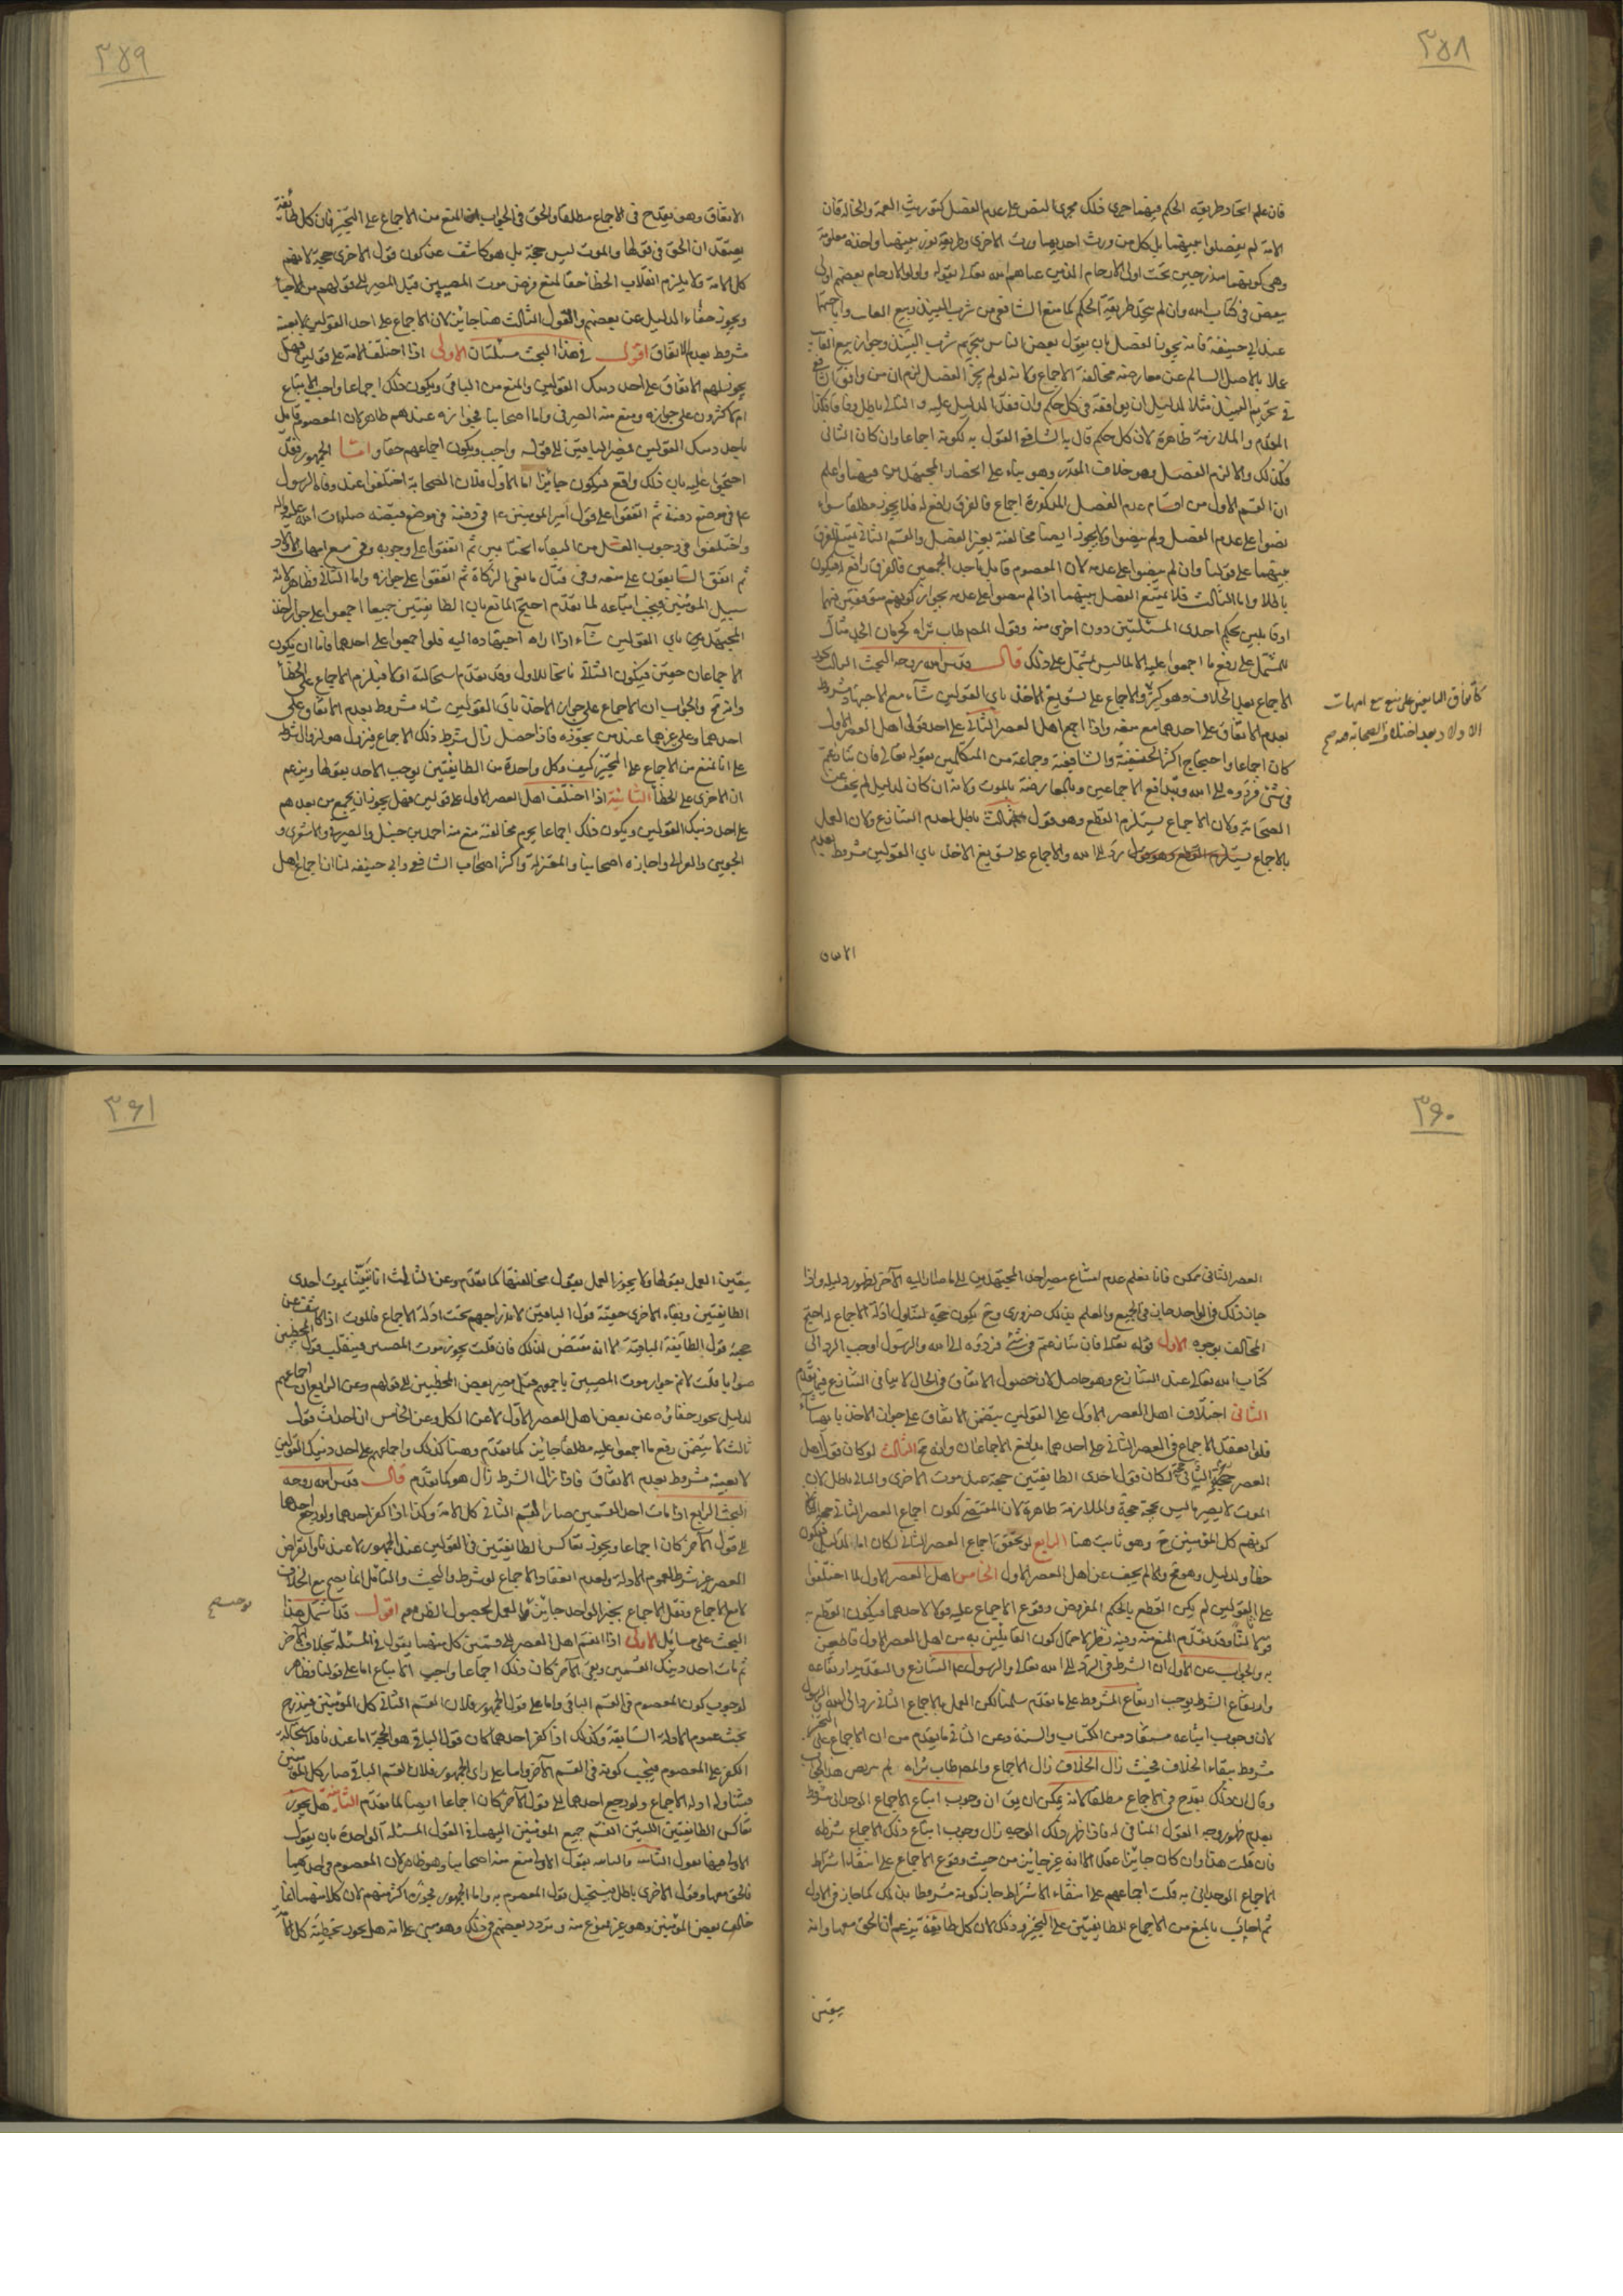 ٣٥٨
فان علم اتحاد طريقة الحكم فيهما جرى ذلك مجرى النص على عدم الفصل كتوريث العمة والخالة فان
الامة لم يفصلوا بينهما بل كل من ورث احديهما ورث الاخرى وطريقة توريثهما واحدة معلومة
وهي كونهما مندرجين تحت اولى الارحام الذين عناهم الله تعالى بقوله واولوا الارحام بعضهم اولى
ببعض في كتاب الله وان لم يتحد طريقة الحكم كما منع الشافعي من شرب النبيذ وبيع الغايب واباحهما
عند ابي حنيفة فانه يجوز الفصل بان يقول بعض الناس بتحريم شرب النبيذ وجواز بيع الغايب
عملا بالاصل السالم عن معارضة مخالفة الاجماع ولانه لو لم يجز الفصل لزم ان من وافق الشافعي
في تحريم النبيذ مثلا لدليل ان يوافقه في كل حكم وان فقد الدليل عليه والتالي باطل وفاقا فكذا
المقدم والملازمة ظاهرة لان كل حكم قال به الشافعي القول به لكونه اجماعا وان كان الثاني
فكذلك والا لزم الفصل وهو خلاف المقدر وهو بناء على انحصار المجتهدين فيهما واعلم
ان القسم الاول من اقسام عدم الفصل المذكورة اجماع فالفرق رافع له فلا يجوز مطلقا سواء
نصوا على عدم الفصل ولم ينصوا ولا يجوز ايضا مخالفته بجز الفصل والقسم الثاني يمتنع الفرق
بينهما على قولنا وان لم ينصوا على عدمه لان المعصوم قايل باحد الجمعين فالفرق رافع له فيكون
باطلا واما الثالث فلا يمتنع الفصل بينهما اذا لم ينصوا على عدمه بجواز كونهم متوقفين فيهما
او قايلين بحكم احدى المسئلتين دون اخرى منه وقول المص طاب ثراه كحرمان الجد مثال
للمشتمل على رفع ما اجمعوا عليه لا لما ليس بمشتمل على ذلك قال قدس الله روحه البحث الثالث يجوز
الاجماع بعد الخلاف وهو كثير والاجماع على تسويغ الاخذ باي القولين شاء مع الاجتهاد مشروط
بعدم الاتفاق على احدهما مع منعه واذا اجمع اهل العصر الثاني على احد قولى اهل العصر الاول
كان اجماعا واحتجاج اكثر الحنفية والشافعية وجماعة من المتكلمين بقوله تعالى فان تنازعتم
في شئ فردوه الى الله وبتدافع الاجماعين وبالمعارضة بالموت ولانه ان كان لدليل لم يخف عن
الصحابة ولان الاجماع يستلزم القطع وهو قول ثالث باطل لعدم التنازع ولان العمل
بالاجماع رد الى الله والاجماع على تسويغ الاخذ باي القولين مشروط بعدم
كاتفاق التابعين على منع بيع امهات
الاولاد بعد اختلاف الصحابة صح
الاتفاق
٣٥٩
الاتفاق وهو يقدح في الاجماع مطلقا والحق في الجواب المنع من الاجماع على التخيير فان كل طايفة
يعتقد ان الحق في قولها والموت ليس حجة بل هو كاشف عن كون قول الاخرى حجة لانهم
كل الامة ولا يلزم انقلاب الخطأ حقا لمنع فرض موت المصيبين قبل المصير الى قولهم من الاحياء
ويجوز خفاء الدليل عن بعضهم والقول الثالث هنا جايز لان الاجماع على احد القولين لا بعينه
مشروط بعدم الاتفاق اقول في هذا البحث مسئلتان الاولى اذا اختلف الامة على قولين فهل
يجوز لهم الاتفاق على احد ذينك القولين والمنع من الباقي ويكون ذلك اجماعا واجب الاتباع
ام لا الاكثرون على جوازه ومنع منه الصيرفي واما اصحابنا فجوازه عندهم ظاهر لان المعصوم قايل
باحد ذينك القولين فيصير الباقين الى قوله واجب ويكون اجماعهم حقا واما الجمهور فقد
احتجوا عليه بان ذلك واقع فيكون جائزا اما الاول فلان الصحابة اختلفوا عند وفاة الرسول
ع في موضع دفنه ثم اتفقوا على قول امير المومنين ع في دفنه في موضع قبضه صلوات الله عليه واله
واختلفوا في وجوب الغسل من التقاء الختانين ثم اتفقوا على وجوبه وفي بيع امهات الاولاد
ثم اتفق التابعون على منعه وفي قتال مانعي الزكاة ثم اتفقوا على جوازه واما الثاني فظاهر لانه
سبيل المومنين فيجب اتباعه لما تقدم احتج المانع بان الطايفتين جميعا اجمعوا على جواز اخذ
المجتهد باي القولين شاء اذا اراه اجتهاده اليه فلو اجمعوا على احدهما فاما ان يكون
الاجماعان حقين فيكون الثاني ناسخا للاول وقد تقدم استحالته او لا فيلزم الاجماع على الخطأ
وانه مح والجواب ان الاجماع على جواز الاخذ باي القولين شاء مشروط بعدم الاتفاق على
احدهما وعلى غيرهما عند من يجوزه فاذا حصل زال شرط ذلك الاجماع فيزول هو لزوال شرطه
على انا نمنع من الاجماع على التخيير كيف وكل واحدة من الطايفتين توجب الاخذ بقولها ويزعم
ان الاخرى على الخطأ الثانية اذا اختلف اهل العصر الاول على قولين فهل يجوز ان يجمع من بعدهم
على احد ذينك القولين ويكون ذلك اجماعا يحرم مخالفته منع منه احمد بن حنبل والصيرفي والاشعري و
الجويني والغزالي واجازه اصحابنا والمعتزلة واكثر اصحاب الشافعي وابي حنيفه لنا ان اجماع اهل
٣٦٠
العصر الثاني ممكن فانا نعلم عدم امتناع مصير احد المجتهدين الى ما صار اليه الآخر لظهور دليله واذا
جاز ذلك في الواحد جاز في الجميع والعلم بذلك ضروري وح يكون حجة لتناول ادلة الاجماع له احتج
المخالف بوجوه الاول قوله تعالى فان تنازعتم في شئ فردوه الى الله والرسول اوجب الرد الى
كتاب الله تعالى عند التنازع وهو حاصل لان حصول الاتفاق في الحال لا ينافي التنازع فيما تقدم
الثاني اختلاف اهل العصر الاول على القولين يتضمن الاتفاق على جواز الاخذ بايهما شاء
فلو انعقد الاجماع في العصر الثاني على احدهما تدافع الاجماعان وانه مح الثالث لو كان قول اهل
العصر الثاني حجة لكان قول احدى الطايفتين حجة عند موت الاخرى والتالي باطل لان
الموت لا يصير ما ليس بحجة حجة والملازمة ظاهرة لان المقتضي لكون اجماع العصر الثاني حجة انما
كونهم كل المؤمنين ح وهو ثابت هنا الرابع لو تحقق اجماع العصر الثاني لكان اما لدليل فيكون
خطأ ولدليل وهو مح والا لم يخف عن اهل العصر الاول الخامس اهل العصر الاول لما اختلفوا
على القولين لم يكن القطع بالحكم المفروض وقوع الاجماع عليه قولا لاحدهما فيكون القطع به
قولا ثالثا وقد تقدم المنع منه وفيه نظر لاحتمال كون القايلين به من اهل العصر الاول قاطعين
به والجواب عن الاول ان الشرط في الرد الى الله تعالى والرسول ع التنازع والتقدير ارتفاعه
وارتفاع الشرط يوجب ارتفاع المشروط على ما تقدم سلمنا لكن العمل بالاجماع الثاني رد الى الله والرسول
لان وجوب اتباعه مستفاد من الكتاب والسنة وعن الثاني ما تقدم من ان الاجماع على التخيير
مشروط ببقاء الخلاف فحيث زال الخلاف زال الاجماع والمص طاب ثراه لم يرتض هذا الجواب
وقال ان ذلك يقدح في الاجماع مطلقا لانه يمكن ان يق ان وجوب اتباع الاجماع الوحداني مشروط
بعدم ظهور وجه القول المنافي له فاذا ظهر ذلك الوجه زال وجوب اتباع ذلك الاجماع لزوال شرطه
فان قلت هذا وان كان جايزا عقلا الا انه غير جايز من حيث وقوع الاجماع على انتفاء اشتراط
الاجماع الوحداني به قلت اجماعهم على انتفاء الاشتراط جاز كونه مشروطا بذلك كما جاز في الاول
ثم اجاب بالمنع من الاجماع للطايفتين على التخيير وذلك لان كل طائفة يزعم ان الحق معها وانه
يتعين
٣٦١
يتعين العمل بقولها ولا يجوز العمل بقول مخالفها كما تقدم وعن الثالث انا تبينا بموت احدى
الطايفتين وبقاء الاخرى حقية قول الباقين لاندراجهم تحت ادلة الاجماع فالموت اذا كاشف عن
حجية قول الطايفة الباقية لا انه مقتض لذلك فان قلت يجوز موت المصيبين فينقلب قول المخطئين
صوابا قلت لا نم جواز موت المصيبين باجمعهم قبل مصير بعض المخطيين الى قولهم وعن الرابع ان اجماعهم
لدليل يجوز خفاؤه عن بعض اهل العصر الاول لا عن الكل وعن الخامس ان احداث قول
ثالث لا يتضمن رفع ما اجمعوا عليه مطلقا جائز كما تقدم وهنا كذلك واجماعهم على احد ذينك القولين
لا بعينه مشروط بعدم الاتفاق فاذا زال الشرط زال هو كما تقدم قال قدس الله روحه
البحث الرابع اذا مات احد القسمين صار القسم الثاني كل الامة وكذا اذا كفر احدهما ولو رجع احدهما
الى قول الآخر كان اجماعا ويجوز تعاكس الطايفتين في القولين عند الجمهور لا عندنا وانقراض
العصر غير شرط لعموم الادلة ولعدم انعقاد الاجماع لو شرط والبحث والتأمل انما يصح مع الخلاف
لا مع الاجماع ونقل الاجماع بخبر الواحد جائز في العمل لحصول الظن معه اقول قد اشتمل هذا
البحث على مسائل الاولى اذا انقسم اهل العصر الى قسمين كل منهما يقول في المسئلة بخلاف الآخر
ثم مات احد ذينك القسمين وبقى الآخر كان ذلك اجماعا واجب الاتباع اما على قولنا فظاهر
لوجوب كون المعصوم في القسم الباقي واما على قول الجمهور فلان القسم الثاني كل المؤمنين فيندرج
تحت عموم الادلة السابقة وكذلك اذا كفر احدهما كان قول الباقي هو الحجة اما عندنا فلاستحالة
الكفر على المعصوم فيجب كونه في القسم الآخر واما على راى الجمهور فلان القسم الباقي صار كل المؤمنين
فيتناوله ادلة الاجماع ولو رجع احدهما الى قول الآخر كان اجماعا ايضا لما تقدم الثانية هل يجوز
تعاكس الطايفتين اللتين انقسم جميع المومنين اليهما في القول المسئلة الواحدة بان يقول
الاولى منهما بقول الثانية والثانية بقول الاولى منع منه اصحابنا وهو ظاهر لان المعصوم في احديهما
فالحق معها وقول الاخرى باطل فيستحيل قول المعصوم به واما الجمهور فجوزه اكثرهم لان كلا منهما انما
خالف بعض المؤمنين وهو غير ممنوع منه وتردد بعضهم في ذلك وهو مبنى على انه هل يجوز تخطئة كل الامة